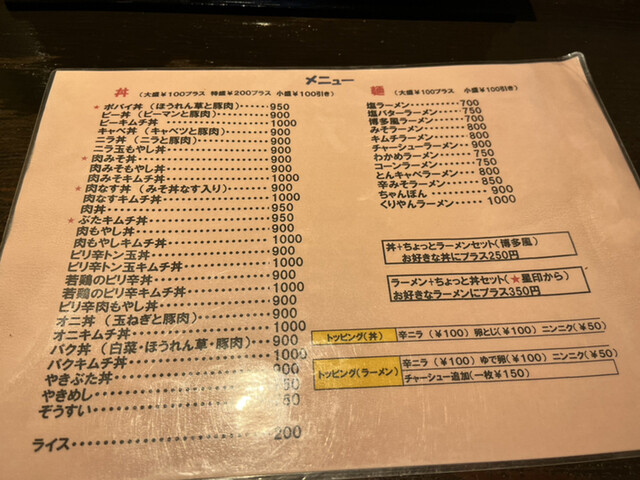 メニュー
丼 （大盛￥100プラス 特盛￥200プラス 小盛￥100引き）
★ポパイ丼（ほうれん草と豚肉）‥‥‥950
ピー丼（ピーマンと豚肉）‥‥‥900
ピーキムチ丼‥‥‥1000
キャベ丼（キャベツと豚肉）‥‥‥900
ニラ丼（ニラと豚肉）‥‥‥900
ニラ玉もやし丼‥‥‥900
★肉みそ丼‥‥‥900
肉みそもやし丼‥‥‥900
肉みそキムチ丼‥‥‥1000
★肉なす丼（みそ丼なす入り）‥‥‥900
肉なすキムチ丼‥‥‥1000
肉丼‥‥‥950
★ぶたキムチ丼‥‥‥950
肉もやし丼‥‥‥900
肉もやしキムチ丼‥‥‥1000
ピリ辛トン玉丼‥‥‥900
ピリ辛トン玉キムチ丼‥‥‥1000
若鶏のピリ辛丼‥‥‥900
若鶏のピリ辛キムチ丼‥‥‥1000
ピリ辛肉もやし丼‥‥‥900
オニ丼（玉ねぎと豚肉）‥‥‥900
オニキムチ丼‥‥‥1000
バク丼（白菜・ほうれん草・豚肉）‥‥‥900
バクキムチ丼‥‥‥1000
やきぶた丼‥‥‥900
やきめし‥‥‥
ぞうすい‥‥‥
ライス‥‥‥200
麺 （大盛￥100プラス 小盛￥100引き）
塩ラーメン‥‥‥700
塩バターラーメン‥‥‥750
博多風ラーメン‥‥‥700
みそラーメン‥‥‥800
キムチラーメン‥‥‥800
チャーシューラーメン‥‥‥900
わかめラーメン‥‥‥750
コーンラーメン‥‥‥750
とんキャベラーメン‥‥‥800
辛みそラーメン‥‥‥850
ちゃんぽん‥‥‥900
くりやんラーメン‥‥‥1000
丼＋ちょっとラーメンセット（博多風）
お好きな丼にプラス250円
ラーメン＋ちょっと丼セット（★星印から）
お好きなラーメンにプラス350円
トッピング（丼） 辛ニラ（￥100） 卵とじ（￥100） ニンニク（￥50）
トッピング（ラーメン） 辛ニラ（￥100） ゆで卵（￥100） ニンニク（￥50）
チャーシュー追加（一枚￥150）